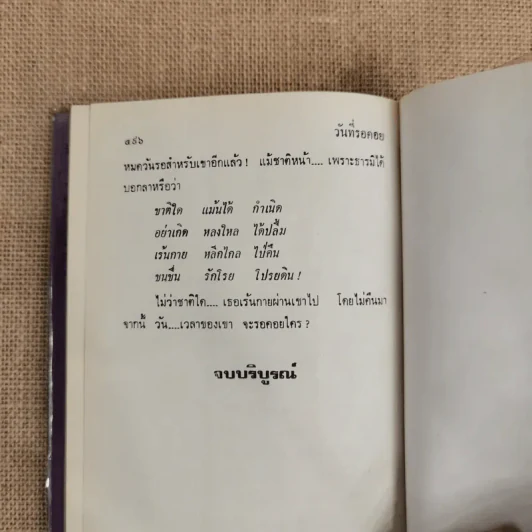 ๔๙๖ วันที่รอคอย
หมดวันรอสำหรับเขาอีกแล้ว! แม้ชาติหน้า.... เพราะธารมิได้
บอกลาหรือว่า
ชาติใด แม้นได้ กำเนิด
อย่าเกิด หลงใหล ได้ปลื้ม
เร้นกาย หลีกไกล ไป่คืน
ขนขื่น รักโรย โปรยดิน!
ไม่ว่าชาติใด.... เธอเร้นกายผ่านเขาไป โดยไม่คืนมา
จากนี้ วัน....เวลาของเขา จะรอคอยใคร?
จบบริบูรณ์